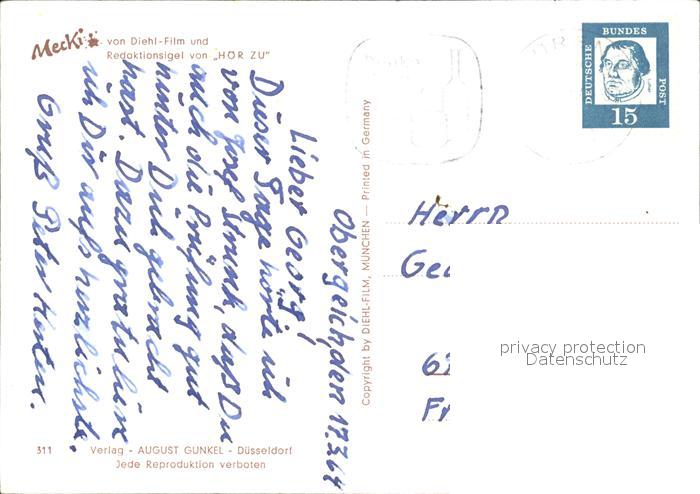 Mecki
von Diehl-Film und
Redaktionsigel von „HÖR ZU"
DEUTSCHE BUNDES POST
15
Obergeich, den 17.3.64
Lieber Georg!
Dieser Tage hörte ich
von Josef Strunk, daß Du
auch die Prüfung gut
hinter Dich gebracht
hast. Dazu gratuliere
ich Dir aufs herzlichste.
Gruß Peter
Copyright by DIEHL-FILM, MÜNCHEN — Printed in Germany
Herrn
Geo
privacy protection
Datenschutz
311
Verlag - AUGUST GUNKEL - Düsseldorf
Jede Reproduktion verboten